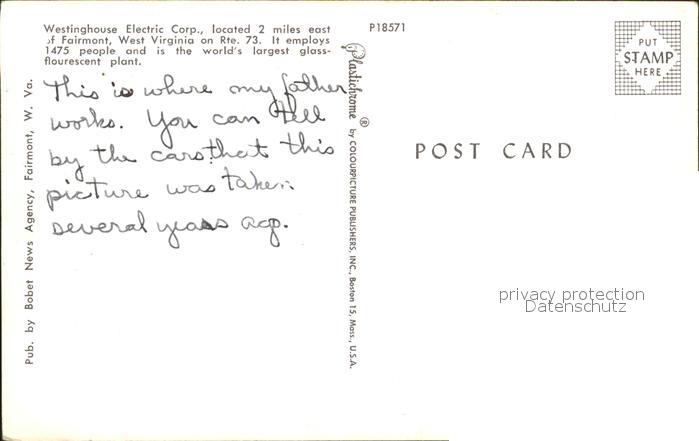 Westinghouse Electric Corp., located 2 miles east
of Fairmont, West Virginia on Rte. 73. It employs
1475 people and is the world's largest glass-
flourescent plant.
This is where my father
works. You can tell
by the cars that this
picture was taken
several years ago.
Pub. by Bobet News Agency, Fairmont, W. Va.
P18571
Plastichrome ® by COLOURPICTURE PUBLISHERS, INC., Boston 15, Mass., U.S.A.
PUT
STAMP
HERE
POST CARD
privacy protection
Datenschutz